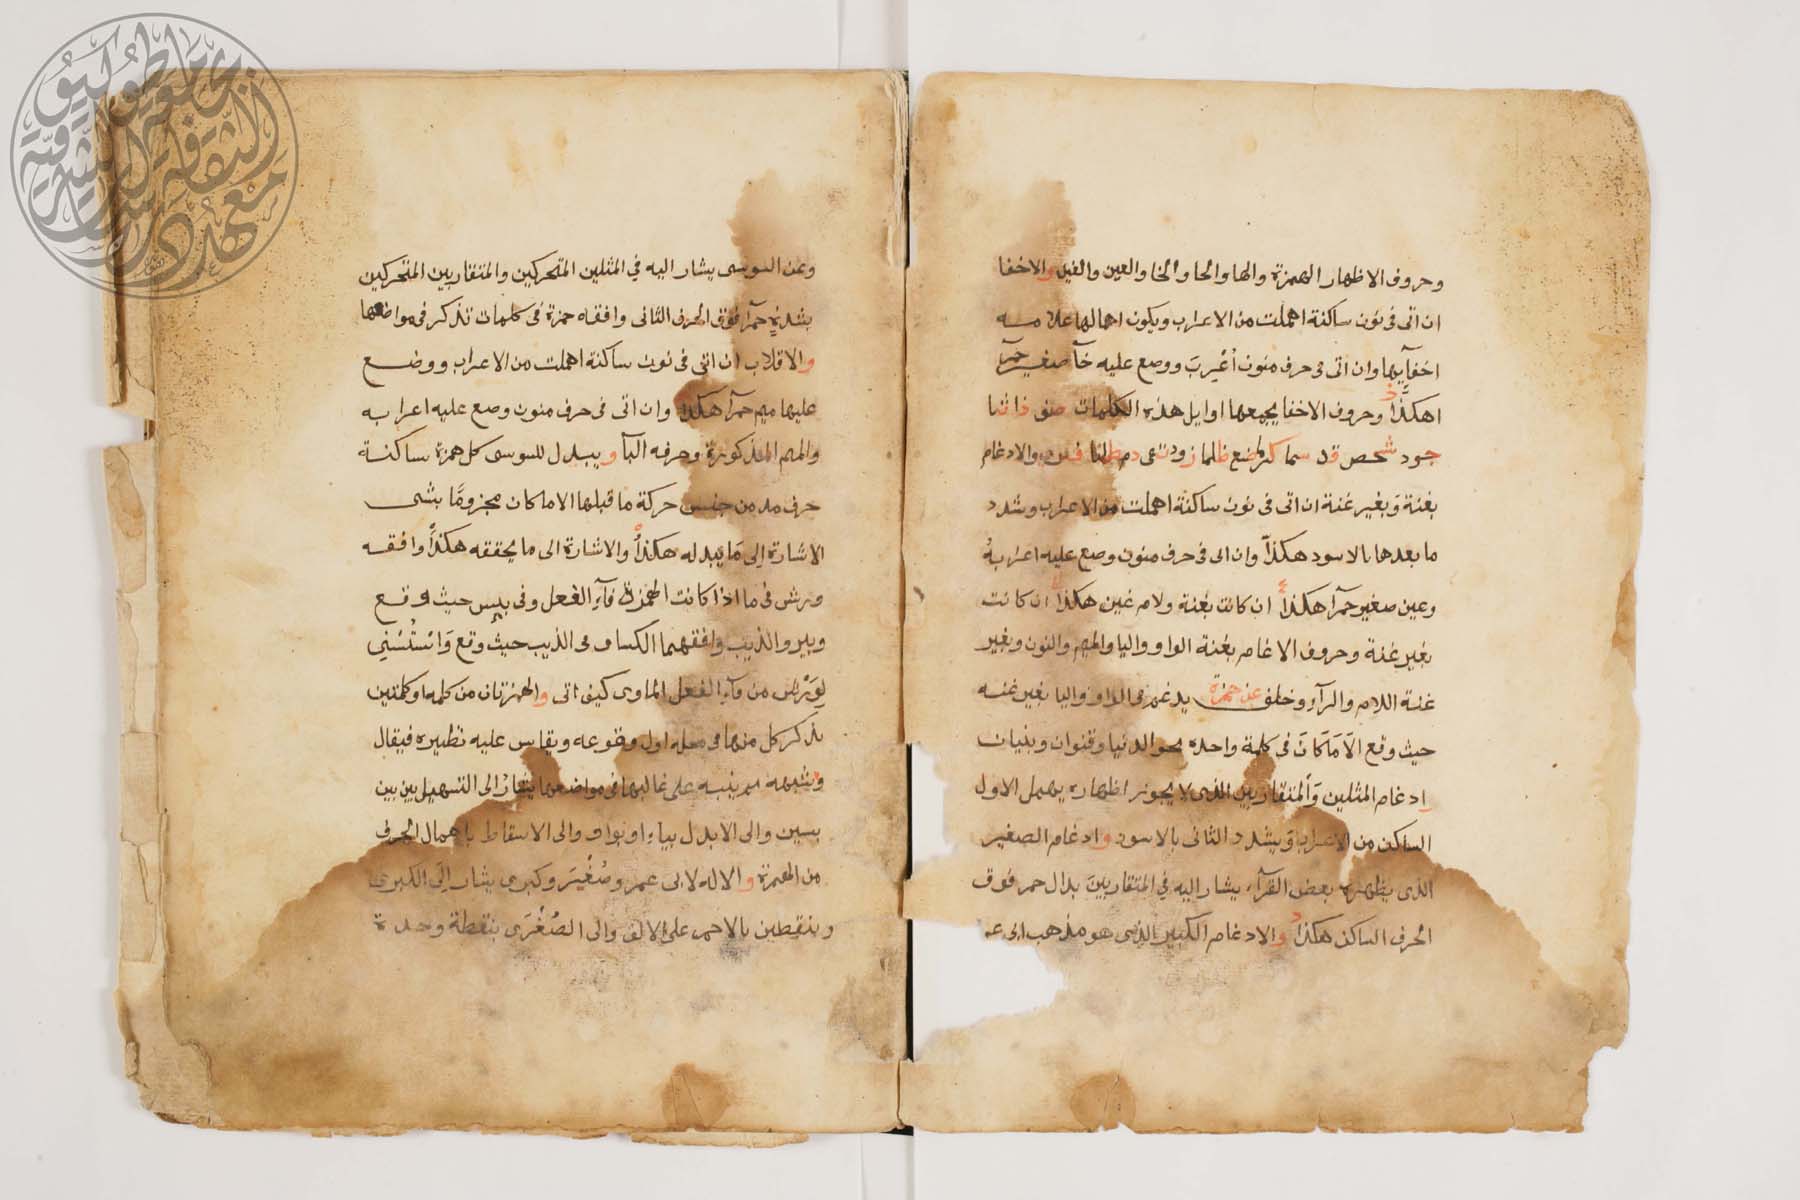 وحروف الاظهار الهمزة والها والحا والخا والعين والغين والاخفا
ان اتى فى نون ساكنة اهملت من الاعراب ويكون اهمالها علامـــه
اخفآيها وان اتى فى حرف منون اُعْرِبَ ووضع عليه خآ صغير حمرآ
اهكذا وحروف الاخفا يجمعها اوايل هذه الكلمات صف ذا ثنا
جود شخص قد سما كرما ضع ظالما زد تقى دم طالبا فترى والادغام
بغنة وَبغير غنة ان اتى فى نون ساكنة اهملت من الاعراب وشدد
ما بعدها بالاسود هكذآ وان اتى فى حرف منون وضع عليه اعرابهُ
وعين صغير حمرآ هكذا ان كانت بغنة ولام غين هكذا ان كانت
بغير غنة وحروف الادغام بغنة الواو واليا والميم والنون وبغير
غنة اللام والرآ وخلف عن حمزة يدغم فى الواو واليا بغير غنـــه
حيث وقع الاَّ مَا كَانَ فى كلمة واحده نحو الدنيا وقنوان وبنيان
ادغام المثلين وَالمتقاربين الذى لا يجوز اظهاره يهمل الاول
الساكن من الاعراب وَيشدد الثانى بالاسود وادغام الصغير
الذى يظهره بعض القرآء يشار اليه فِي المتقاربينَ بدال حمر فوق
الحرف الساكن هكذا والادغام الكبير الذى هو مذهب ابى عمـ
وعن السوسى يشار اليه فِي المثلين المتحركين والمتقاربين المتحركين
بشدةٍ حمرآ فوق الحرف الثانى وافقاه حمزة فى كلمات تذكر فى مواضعها
والاقلاب ان اتى فى نون ساكنة اهملت من الاعراب ووضـــع
عليها ميم حمرآ هكذا وان اتى فى حرف منون وضع عليه اعرابه
والميم المذكورة وحرفه البآ ويبدل للسوسى كل همزة ساكنـــة
حرف مد من جنس حركة ما قبلها الا ما كان مجزومًا بشى
الاشارة اِلى مَا يبدله هكذاْ والاشارة الى ما يحققه هكذاْ وافقـــه
ورش فى ما اذا كانت الهمزة فآء الفعل وفى بيس حيث وقـــع
وبير والذيب وافقهما الكساى فى الذيب حيث وقع وَاسْتُثْنِي
لِوَرْش من فآء الفعل الماوى كيف اتى والهمزتان من كلمه او كلمتين
يذكر كل منها فى محله اول وقوعه ويقاس عليه نظيره فيقال
وشبهه ينبه على غالبها فى مواضعها يشار الى التسهيل بين بين
بسين والى الابدل بياء او بواو والى الاسقاط باهمال الحرف
من الهمزة والاماله لابى عمر وصُغْرى وكبرى يشار اِلَى الكبرى
وبنقطين بالاحمر على الالف والى الصُغْرَى بنقطة وحدة